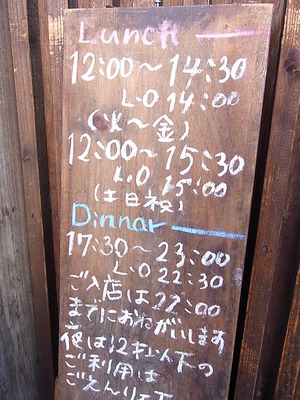 Lunch
12:00〜14:30
L.O 14:00
(火〜金)
12:00〜15:30
L.O 15:00
(土日祝)
Dinnar
17:30〜23:00
L.O 22:30
ご入店は22:00
までにおねがいします
夜は12才以下の
ご利用は
ごえんりょ下